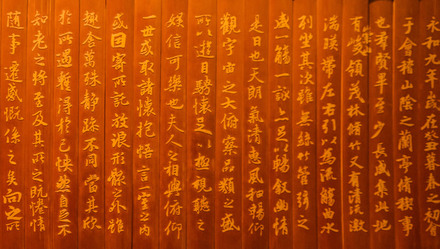 永和九年歲在癸丑暮春之初會
于會稽山陰之蘭亭脩稧事
也羣賢畢至少長咸集此地
有崇山峻領茂林脩竹又有清流激
湍暎帶左右引以為流觴曲水
列坐其次雖無絲竹管弦之
盛一觴一詠亦足以暢敘幽情
是日也天朗氣清惠風和暢仰
觀宇宙之大俯察品類之盛
所以遊目騁懷足以極視聽之
娛信可樂也夫人之相與俯仰
一世或取諸懷抱悟言一室之內
或因寄所託放浪形骸之外雖
趣舍萬殊靜躁不同當其欣
於所遇暫得於己快然自足不
知老之將至及其所之既惓情
隨事遷感慨係之矣向之所